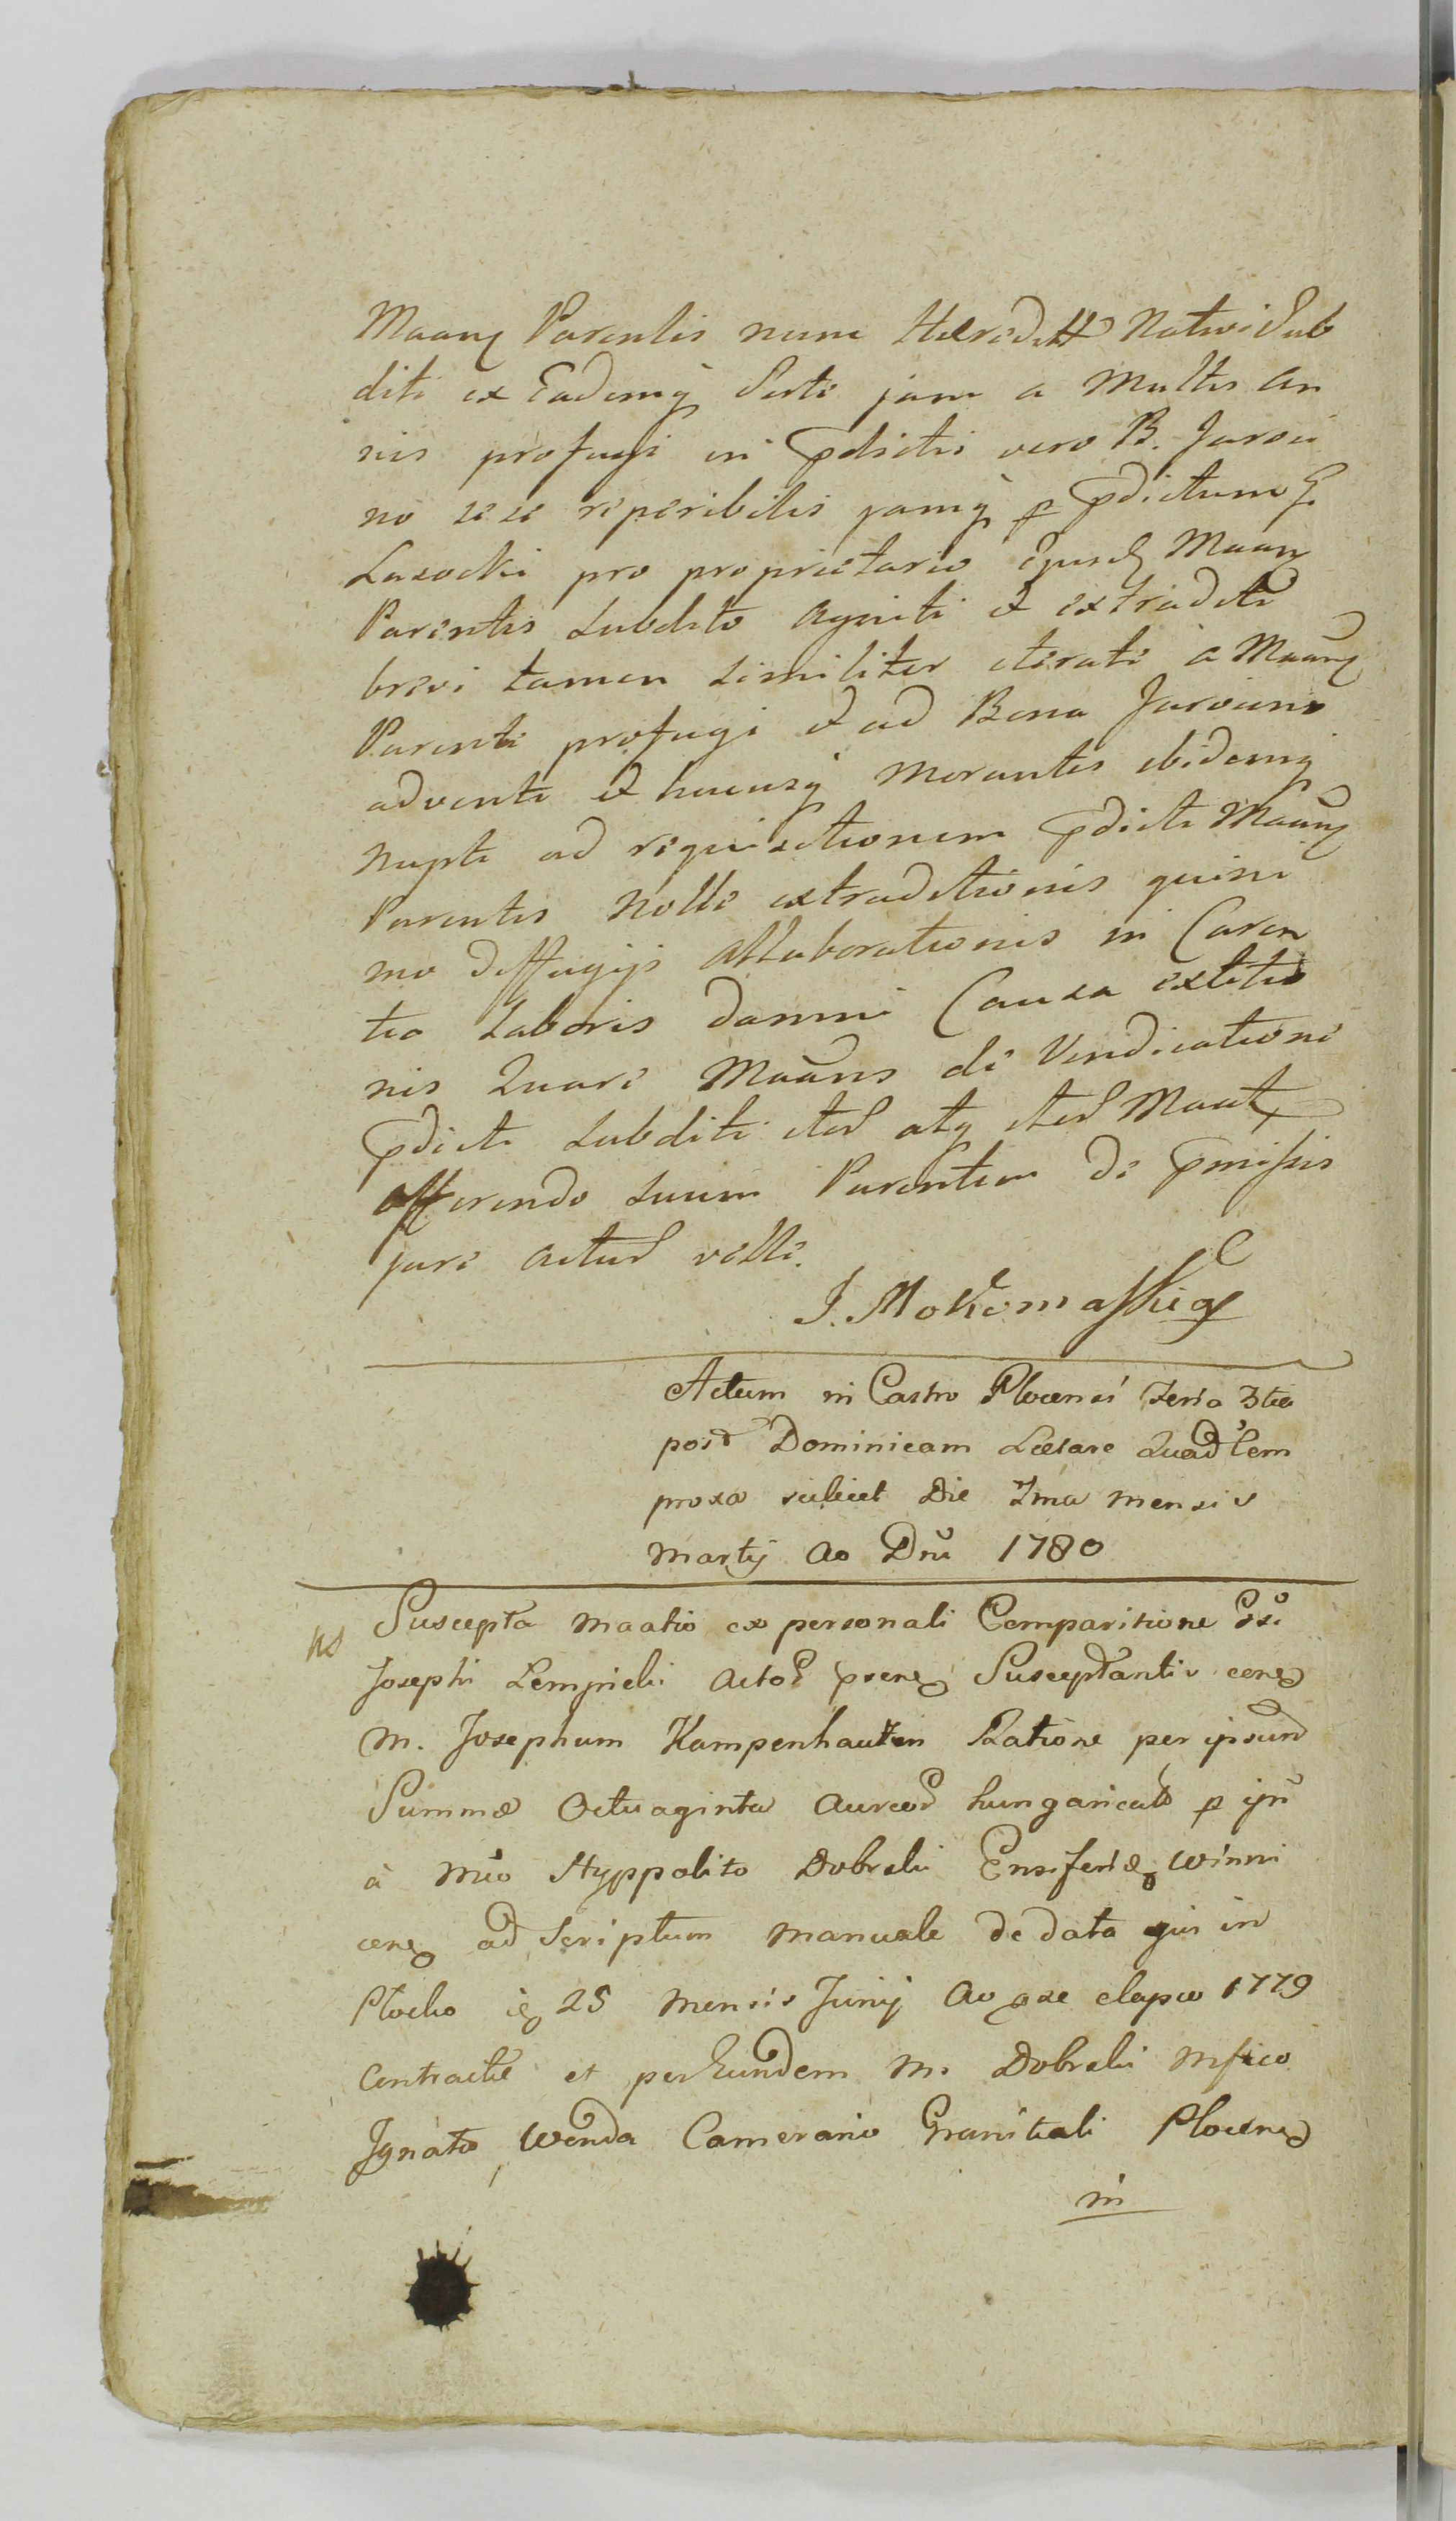 Maanς Parentis nunc Hæredit Nativi Sub
diti ex Eademq̃ Sorte jam a Multis an
nis profugi in pdictis vero B. Jarosi
no sese reperibilis jamq̃ p pdictum G.
Lasocki pro proprietario Ejusd Maanς
Parentis subdito Agniti et extraditi
brevi tamen similiter iterati a Maanς
Parente profugi et ad Bona Jarosino
adventi et hucusq̃ Morantis ibidemq̃
Nupti ad requisitionem pdicti Maanς
Parentis Nolle extraditionis quini
mo diffugijs Allaborationis in Caren
tia Laboris damni Causa extitio
nis Quare Maans de Vindicatione
pdicti subditi iter atq iter Maat
offerendo suum Parentem de pmissis
jure actur velle.
J. Mokronoski
Actum in Castro Plocensi Feria 3tia
post Dominicam Lætare Quadlem
proxa scilicet Die 7ma mensis
Martij Ao Dni 1780
ns
Suscepta maatio ex personali Comparitione Gsi
Josephi Lempicki Actor psenς Susceptantis cenς
M. Josephum Kampenhausen Ratione per ipsum
Summæ Octuaginta Aureor hungaricals p ipm
à Mco Hyppolito Dobrski Ensifero Winni
cenς ad Scriptum manuale de data ejus in
Plocko 25 Mensis Junij Ao pxe elapso 1779
Contractæ et per Eundem M. Dobrski Mfico
Ignatio Wenda Camerario Granitiali Plocenς
in